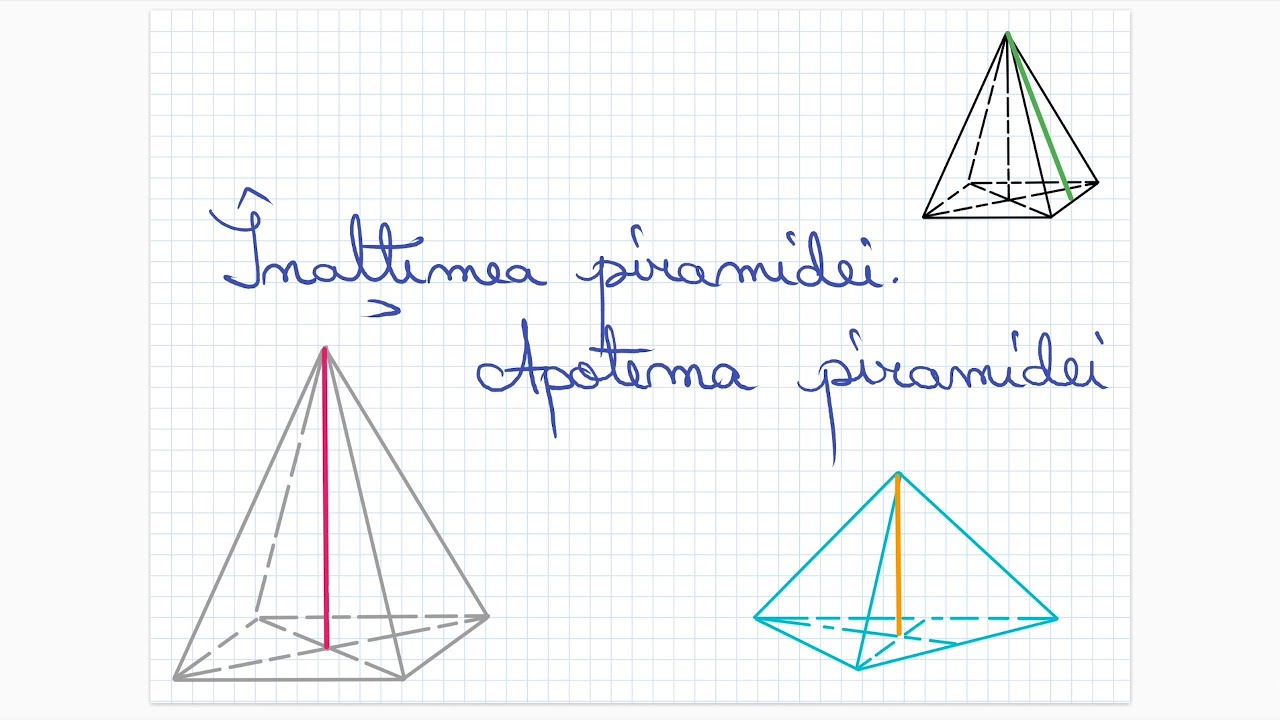 Înălțimea piramidei.
Apotema piramidei